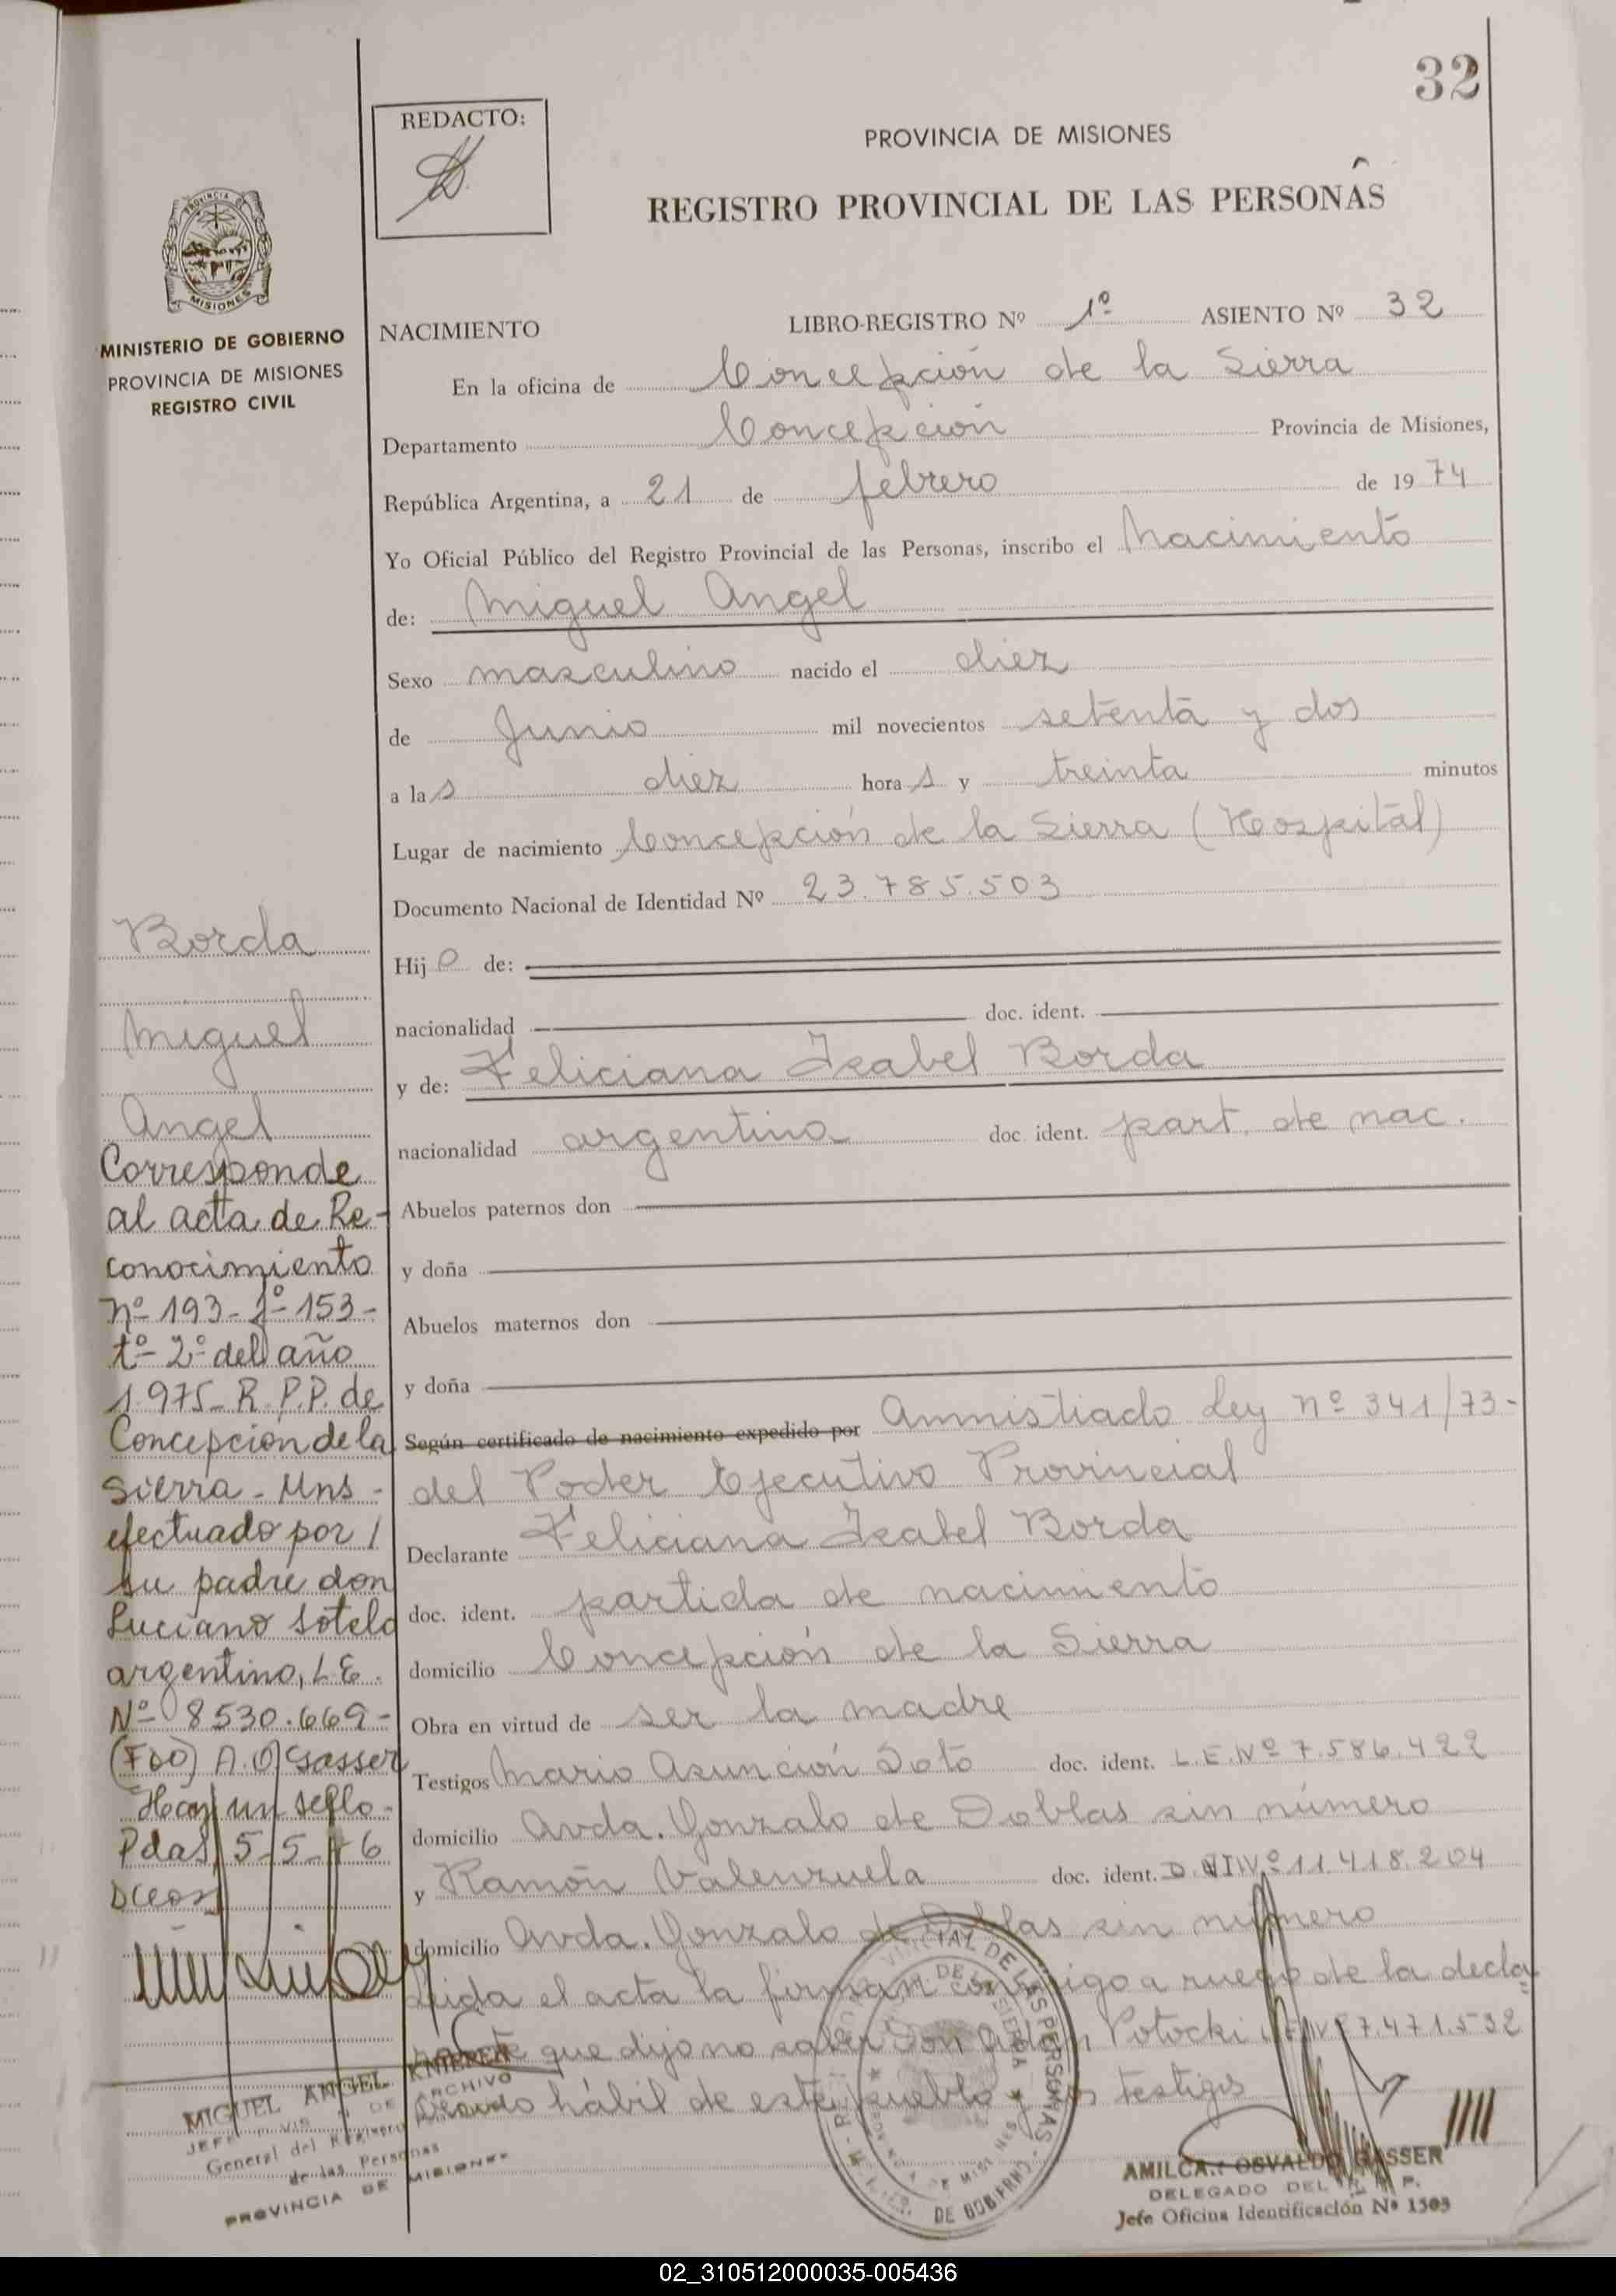 32
REDACTO:
PROVINCIA DE MISIONES
REGISTRO PROVINCIAL DE LAS PERSONAS
PROVINCIA DE
MISIONES
MINISTERIO DE GOBIERNO
PROVINCIA DE MISIONES
REGISTRO CIVIL
NACIMIENTO LIBRO-REGISTRO Nº 1º ASIENTO Nº 32
En la oficina de Concepción de la Sierra
Departamento Concepción Provincia de Misiones,
República Argentina, a 21 de febrero de 1974
Yo Oficial Público del Registro Provincial de las Personas, inscribo el Nacimiento
de: Miguel Angel
Sexo masculino nacido el diez
de Junio mil novecientos setenta y dos
a las diez horas y treinta minutos
Lugar de nacimiento Concepción de la Sierra (Hospital)
Documento Nacional de Identidad Nº 23.785.503
Hijo de:
nacionalidad doc. ident.
y de: Feliciana Isabel Borda
nacionalidad argentina doc. ident. part. de nac.
Abuelos paternos don
y doña
Abuelos maternos don
y doña
Según certificado de nacimiento expedido por Amnistiado Ley nº 341/73-
del Poder Ejecutivo Provincial
Declarante Feliciana Isabel Borda
doc. ident. partida de nacimiento
domicilio Concepción de la Sierra
Obra en virtud de ser la madre
Testigos Mario Asunción Soto doc. ident. L.E.Nº 7.586.422
domicilio Avda. Gonzalo de Doblas sin número
y Ramón Valenzuela doc. ident. D.N.I.Nº 11.418.204
domicilio Avda. Gonzalo de Doblas sin número
Leida el acta la firman conmigo a ruego de la decla
rante que dijo no saber Don Adán Potocki L.E.Nº 7.471.532
hábil de este pueblo y los testigos
Borda
Miguel
Angel
Corresponde
al acta de Re-
conocimiento
nº 193- fº 153-
tº- 2º del año
1.975- R.P.P. de
Concepcion de la
Sierra - Mns -
efectuado por /
su padre don
Luciano Sotelo
argentino, L.E.
Nº 8530.669-
(FDO) A.O. Gasser
Hay un sello-
Pdas, 5-5-76
MIGUEL ANGEL KNIEPER
ARCHIVO
General del Registro
de las Personas
PROVINCIA DE MISIONES
DE LAS PERSONAS
DE GOBIERNO
AMILCAR OSVALDO GASSER
DELEGADO DEL R. P. P.
Jefe Oficina Identificación Nº 1503
02_310512000035-005436